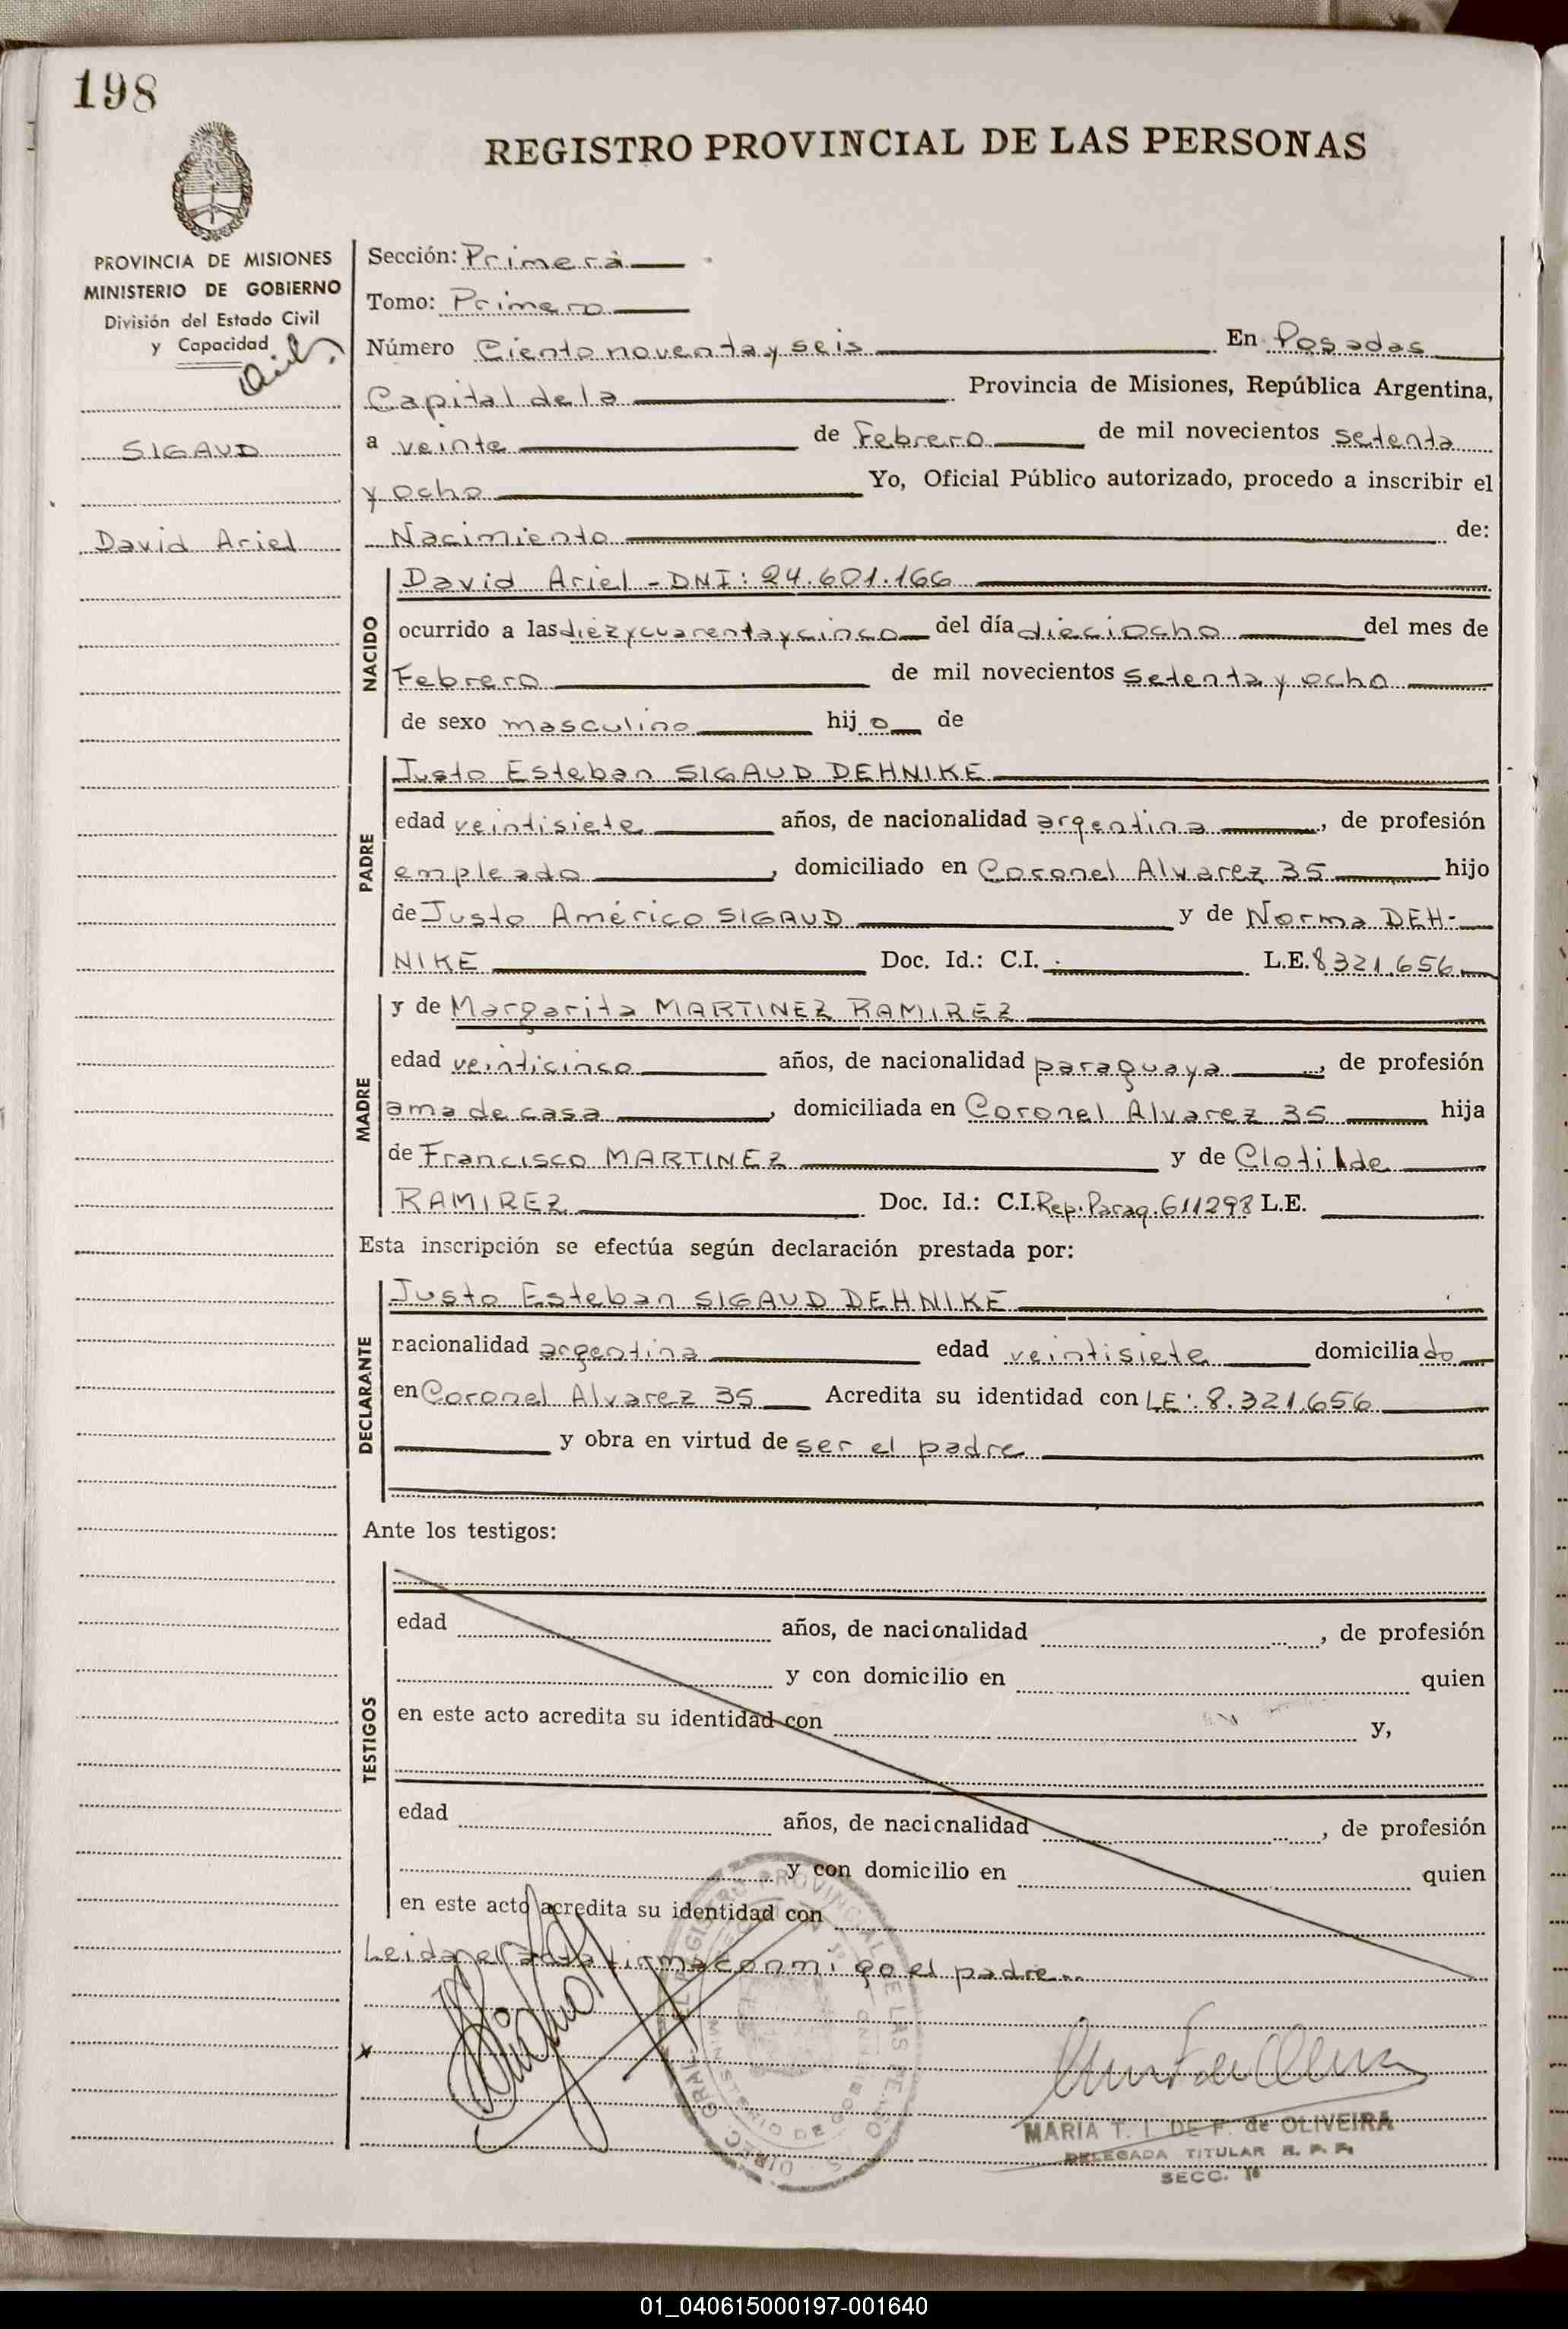 198
REGISTRO PROVINCIAL DE LAS PERSONAS
PROVINCIA DE MISIONES
MINISTERIO DE GOBIERNO
División del Estado Civil
y Capacidad
SIGAUD
David Ariel
Sección: Primera
Tomo: Primero
Número Ciento noventa y seis En Posadas
Capital de la Provincia de Misiones, República Argentina,
a veinte de Febrero de mil novecientos setenta
y ocho Yo, Oficial Público autorizado, procedo a inscribir el
Nacimiento de:
NACIDO
David Ariel - DNI: 24.601.166
ocurrido a las diez y cuarenta y cinco del día dieciocho del mes de
Febrero de mil novecientos setenta y ocho
de sexo masculino hijo de
PADRE
Justo Esteban SIGAUD DEHNIKE
edad veintisiete años, de nacionalidad argentina, de profesión
empleado, domiciliado en Coronel Alvarez 35 hijo
de Justo Américo SIGAUD y de Norma DEH-
NIKE Doc. Id.: C.I. L.E. 8321.656
MADRE
y de Margarita MARTINEZ RAMIREZ
edad veinticinco años, de nacionalidad paraguaya, de profesión
ama de casa, domiciliada en Coronel Alvarez 35 hija
de Francisco MARTINEZ y de Clotilde
RAMIREZ Doc. Id.: C.I. Rep. Parag. 611298 L.E.
Esta inscripción se efectúa según declaración prestada por:
DECLARANTE
Justo Esteban SIGAUD DEHNIKE
nacionalidad argentina edad veintisiete domiciliado
en Coronel Alvarez 35 Acredita su identidad con LE: 8.321.656
y obra en virtud de ser el padre
Ante los testigos:
TESTIGOS
edad años, de nacionalidad , de profesión
y con domicilio en quien
en este acto acredita su identidad con y,
edad años, de nacionalidad , de profesión
y con domicilio en quien
en este acto acredita su identidad con
Leida el acta firma conmigo el padre..
MARIA T. I. DE F. de OLIVEIRA
DELEGADA TITULAR R. P. P.
SECC. 1ª
01_040615000197-001640